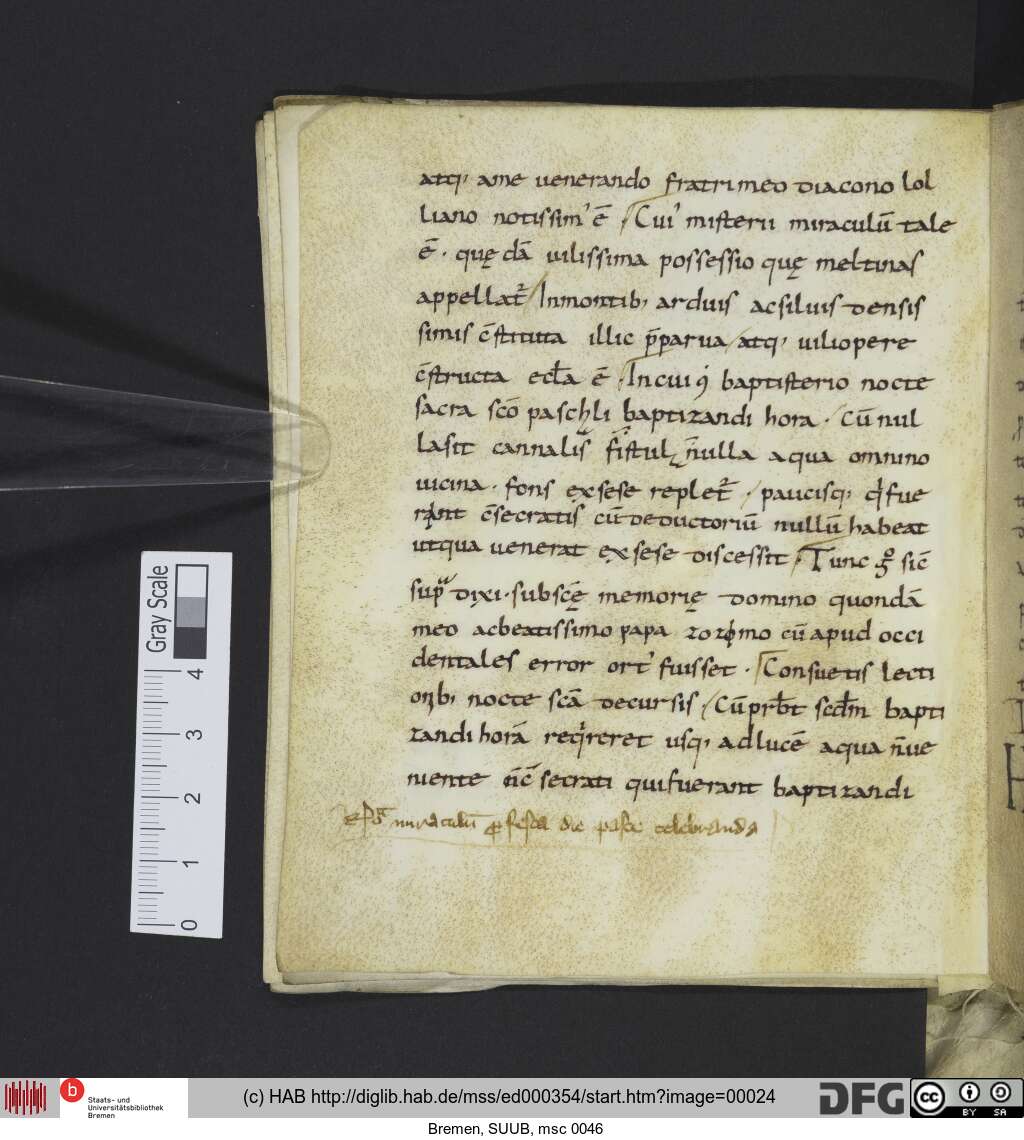 atq; ame venerando fratri meo diacono lol
liano notissim' ē. Cui' misterii miraculū tale
ē. quędā vilissima possessio quę meltinas
appellat̄. In montib; arduis ac silvis densis
simis c̄stituta illic p̄parva atq; vili opere
c̄structa eccl̄a ē. In cui9 baptisterio nocte
sacra scō paschli baptizandi hora. Cū nul
la sit cannalis fistulę n̄ nulla aqua omnino
vicina. fons ex sese replet̄. paucisq; q̇ fue
rant c̄secratis cū deductoriū nullū habeat
ut qua venerat ex sese discessit. Tunc g° sic̄
sup dixi. sub scę memorię domino quondā
meo ac beatissimo papa zozimo cū apud occi
dentales error ort' fuisset. Consuetis lecti
onib; nocte scā decursis. Cū prb̄t scd̄m bapti
zandi horā reqireret usq; ad lucē aqua n̄ ve
niente n̄ c̄secrati qui fuerant baptizandi
miraculū festa die pasce celebranda
Gray Scale
4
3
2
1
0
Staats- und
Universitätsbibliothek
Bremen
(c) HAB http://diglib.hab.de/mss/ed000354/start.htm?image=00024
DFG
cc BY SA
Bremen, SUUB, msc 0046